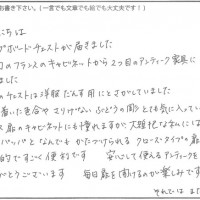 お書き下さい。(一言でも文章でも絵でも大丈夫です！)
にちは
プボードチェストが届きました
のフランスのキャビネットから２つ目のアンティーク家具に
ました
チェストは洋服だんす用にとさがしていました
着いた色合や さりげないぶどうの彫りとても気に入ってい
ス扉のキャビネットにも憧れますが 大雑把な私には
パッパッとなんでもかたづけられるクローズタイプの扉
的ですごく便利です 安心して使えるアンティークを
がとうございます 毎日扉を開けるのが楽しみです
それではまた